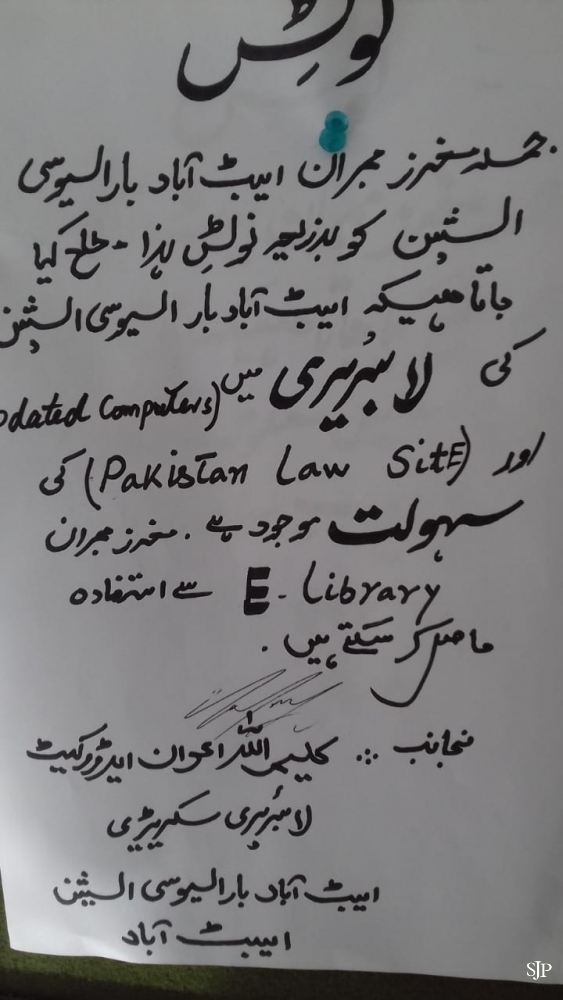 نوٹس
جملہ معزز ممبران ایبٹ آباد بار ایسوسی
ایشن کو بذریعہ نوٹس ہذا - طلع کیا
جاتا ہیکہ ایبٹ آباد بار ایسوسی ایشن
کی لائبریری میں (pdated Computers)
اور (Pakistan Law SitE) کی
سہولت موجود ہے . معزز ممبران
E - Library سے استفادہ
حاصل کر سکتے ہیں .
منجانب ∴ کلیم اللہ اعوان ایڈووکیٹ
لائبریری سکریٹری
ایبٹ آباد بار ایسوسی ایشن
ایبٹ آباد
SJP